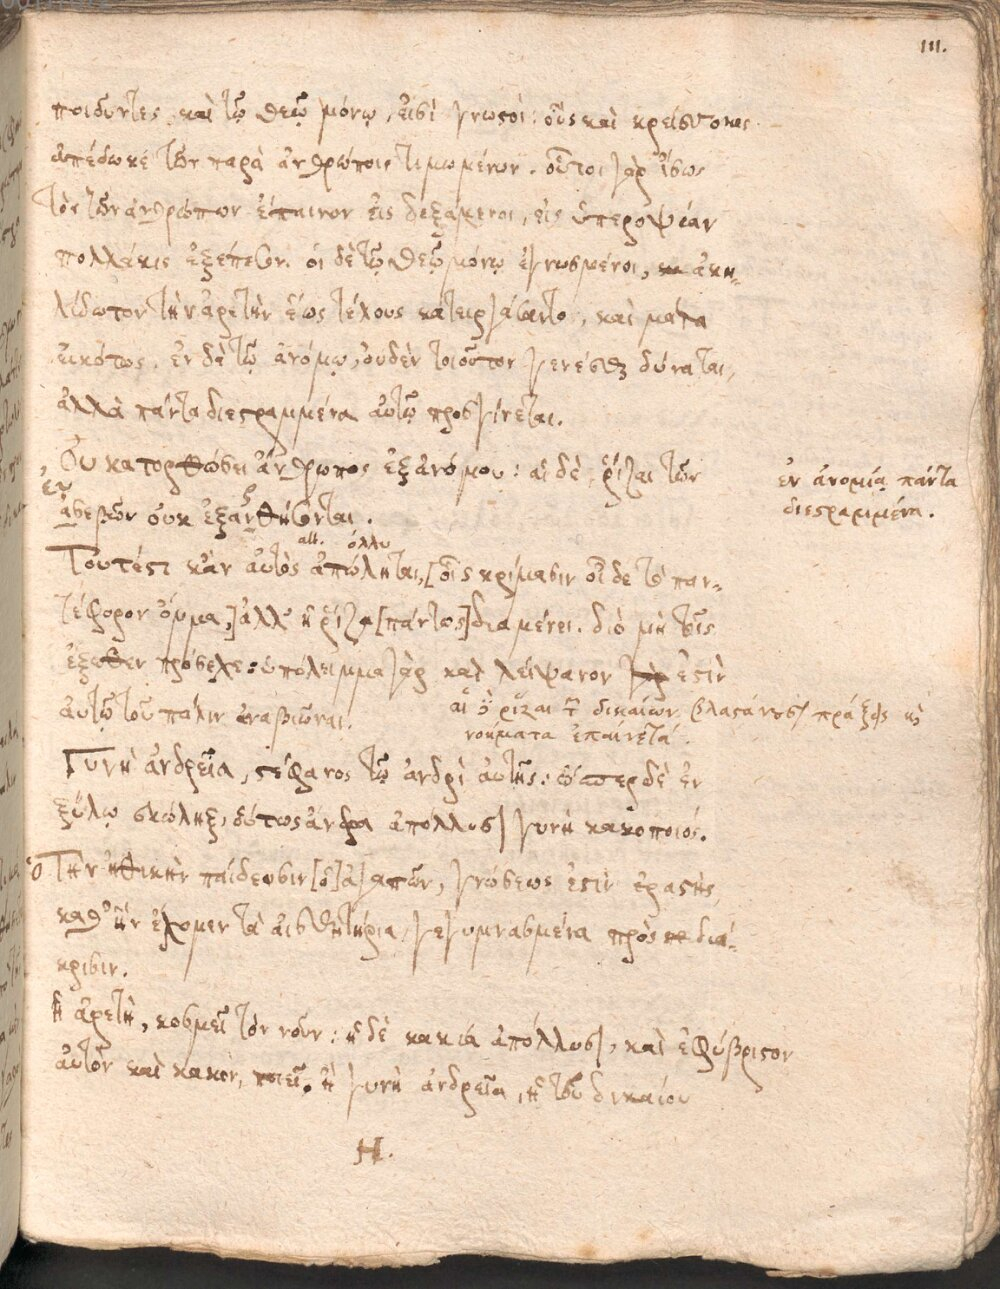 111.
ποιοῦντες, καὶ τῷ θεῷ μόνῳ, εἰσὶ γνωστοί: οὓς καὶ κρείσσονας
ἀπέδωκε τῶν παρὰ ἀνθρώποις τιμωμένων. οὗτοι γὰρ ἴσως
τὸν τῶν ἀνθρώπων ἔπαινον εἰσδεξάμενοι, εἰς ὑπεροψίαν
πολλάκις ἐξέπεσον. οἱ δὲ τῷ θεῷ μόνῳ ἐγνωσμένοι, ἀκη-
λίδωτον τὴν ἀρετὴν ἕως τέλους κατειργάσαντο, καὶ μάλα
εἰκότως. ἐν δὲ τῷ ἀνόμῳ, οὐδὲν τοιοῦτον γενέσθαι δύναται,
ἀλλὰ πάντα διεστραμμένα αὐτῷ προσγίνεται.
Οὐ κατορθώσει ἄνθρωπος ἐξ ἀνόμου: αἱ δὲ ῥίζαι τῶν
ἐν ἀνομίᾳ πάντα
διεστραμμένα.
ἀσεβῶν οὐκ ἐξαρθήσονται.
all. όλλυ
Τουτέστι κἂν αὐτὸς ἀπώληται, [οἷς κρίμασιν οἶδε τὸ παν-
τέφορον ὄμμα,] ἀλλ' ἡ ῥίζα [πάντως] διαμένει. διὸ μὴ τοῖς
ἔξωθεν πρόσελε: ὑπόλειμμα γὰρ καὶ λείψανον ἐστὶν
αὐτῷ τοῦ πάλιν ἀναβιῶναι.
αἱ δὲ ῥίζαι τῶν δικαίων βλαστάνουσι πράξεις καὶ
νοήματα ἐπαινετά.
Γυνὴ ἀνδρεῖα, στέφανος τῷ ἀνδρὶ αὐτῆς: ὥσπερ δὲ ἐν
ξύλῳ σκώληξ, οὕτως ἄνδρα ἀπόλλυσι γυνὴ κακοποιός.
ὁ Τὴν ἠθικὴν παίδευσιν [ὁ] ἀγαπῶν, γνώσεως ἐστὶν ἐραστής,
καθ' ἣν ἔχομεν τὰ αἰσθητήρια γεγυμνασμένα πρὸς διά-
κρισιν.
ἡ ἀρετὴ, κοσμεῖ τὸν νοῦν: ἡ δὲ κακία ἀπόλλυσι, καὶ ἐφύβριστον
αὐτὸν καὶ κακὸν, ποιεῖ. ἢ γυνὴ ἀνδρεῖα, ἡ τοῦ δικαίου
Η.